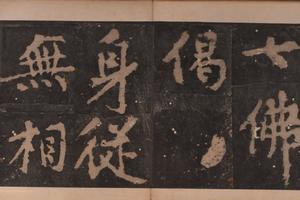 七佛
偈
身從
無相